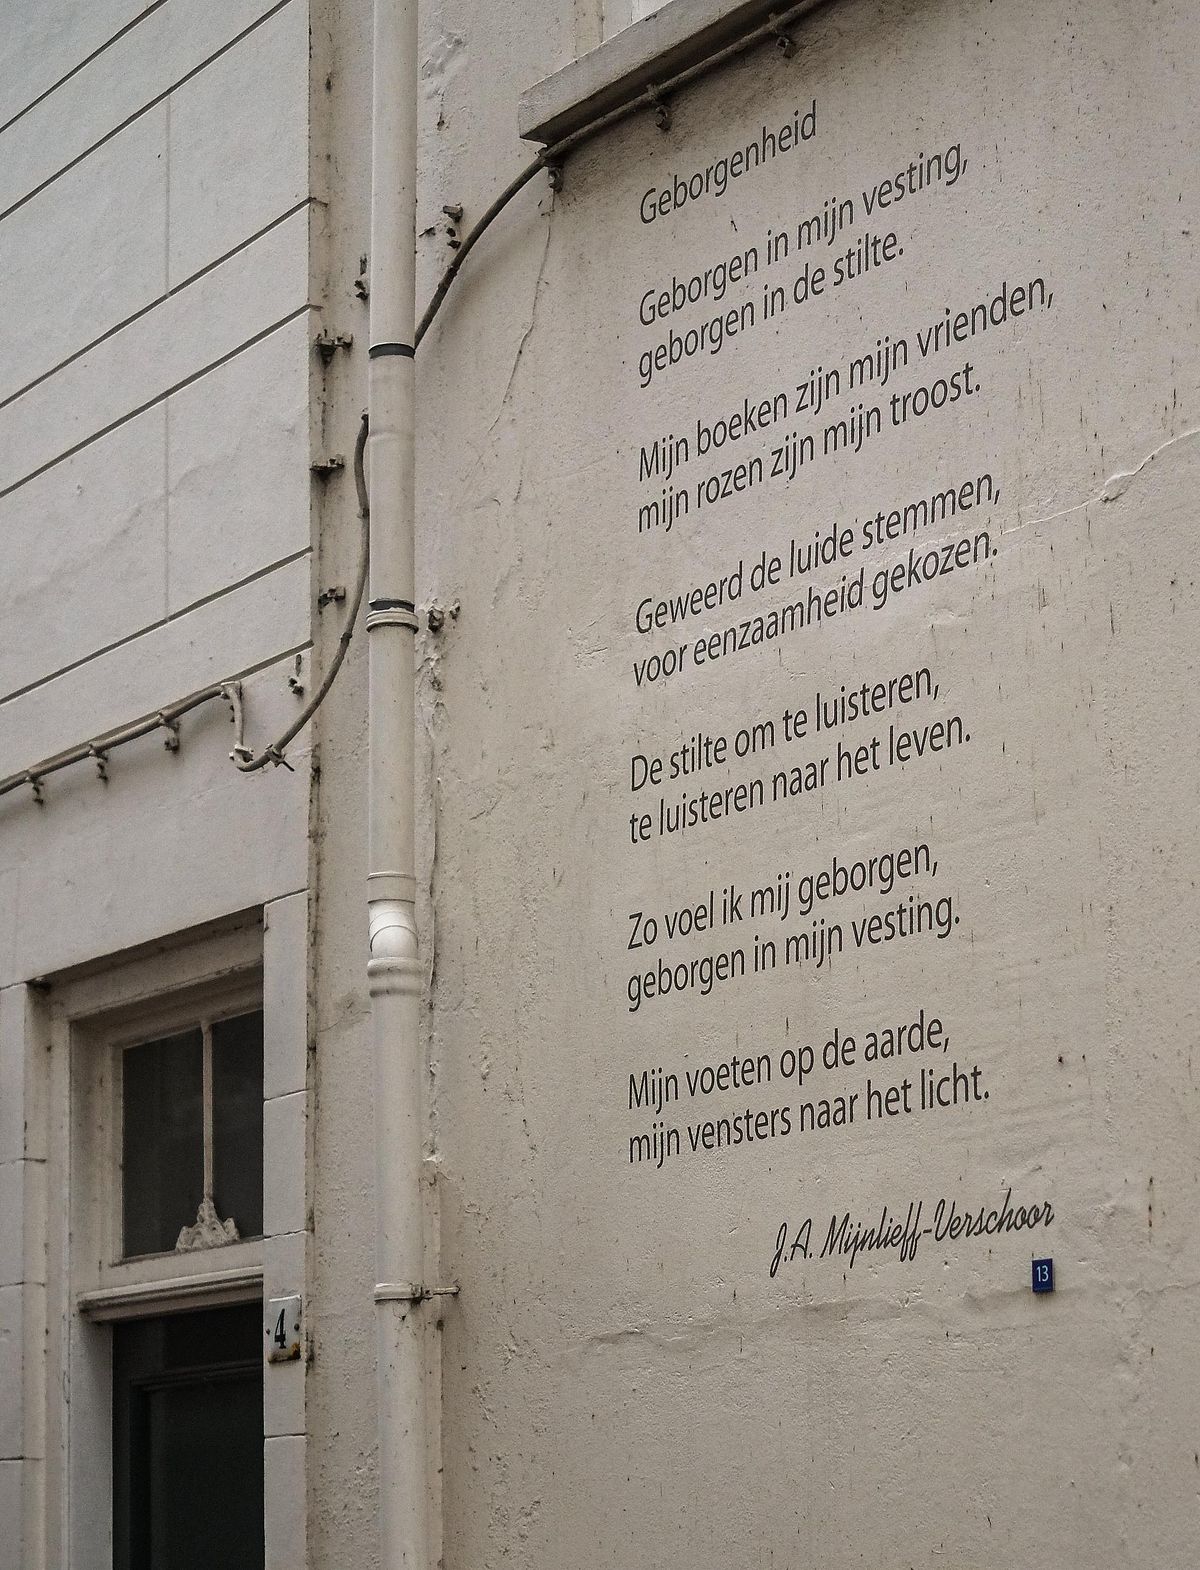 Geborgenheid
Geborgen in mijn vesting,
geborgen in de stilte.
Mijn boeken zijn mijn vrienden,
mijn rozen zijn mijn troost.
Geweerd de luide stemmen,
voor eenzaamheid gekozen.
De stilte om te luisteren,
te luisteren naar het leven.
Zo voel ik mij geborgen,
geborgen in mijn vesting.
Mijn voeten op de aarde,
mijn vensters naar het licht.
J.A. Mijnlieff-Verschoor
13
4